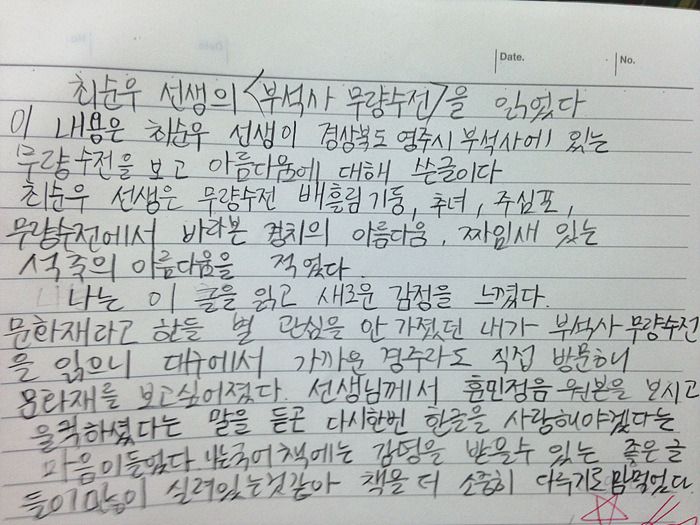 Date. No.
최순우 선생의 <부석사 무량수전>을 읽었다
이 내용은 최순우 선생이 경상북도 영주시 부석사에 있는
무량수전을 보고 아름다움에 대해 쓴글이다
최순우 선생은 무량수전 배흘림기둥, 추녀, 주심포,
무량수전에서 바라본 경치의 아름다움, 짜임새 있는
석축의 아름다움을 적었다.
나는 이 글을 읽고 새로운 감정을 느꼈다.
문화재라고 한들 별 관심을 안 가졌던 내가 부석사 무량수전
을 읽으니 대구에서 가까운 경주라도 직접 방문하니
문화재를 보고싶어졌다. 선생님께서 훈민정음 원본을 보시고
울컥하셨다는 말을 듣곤 다시한번 한글을 사랑해야겠다는
마음이들었다. 나는국어책에는 감명을 받을수 있는 좋은글
들이많이 실려있는것같아 책을 더 소중히 다루기로 맘먹었다